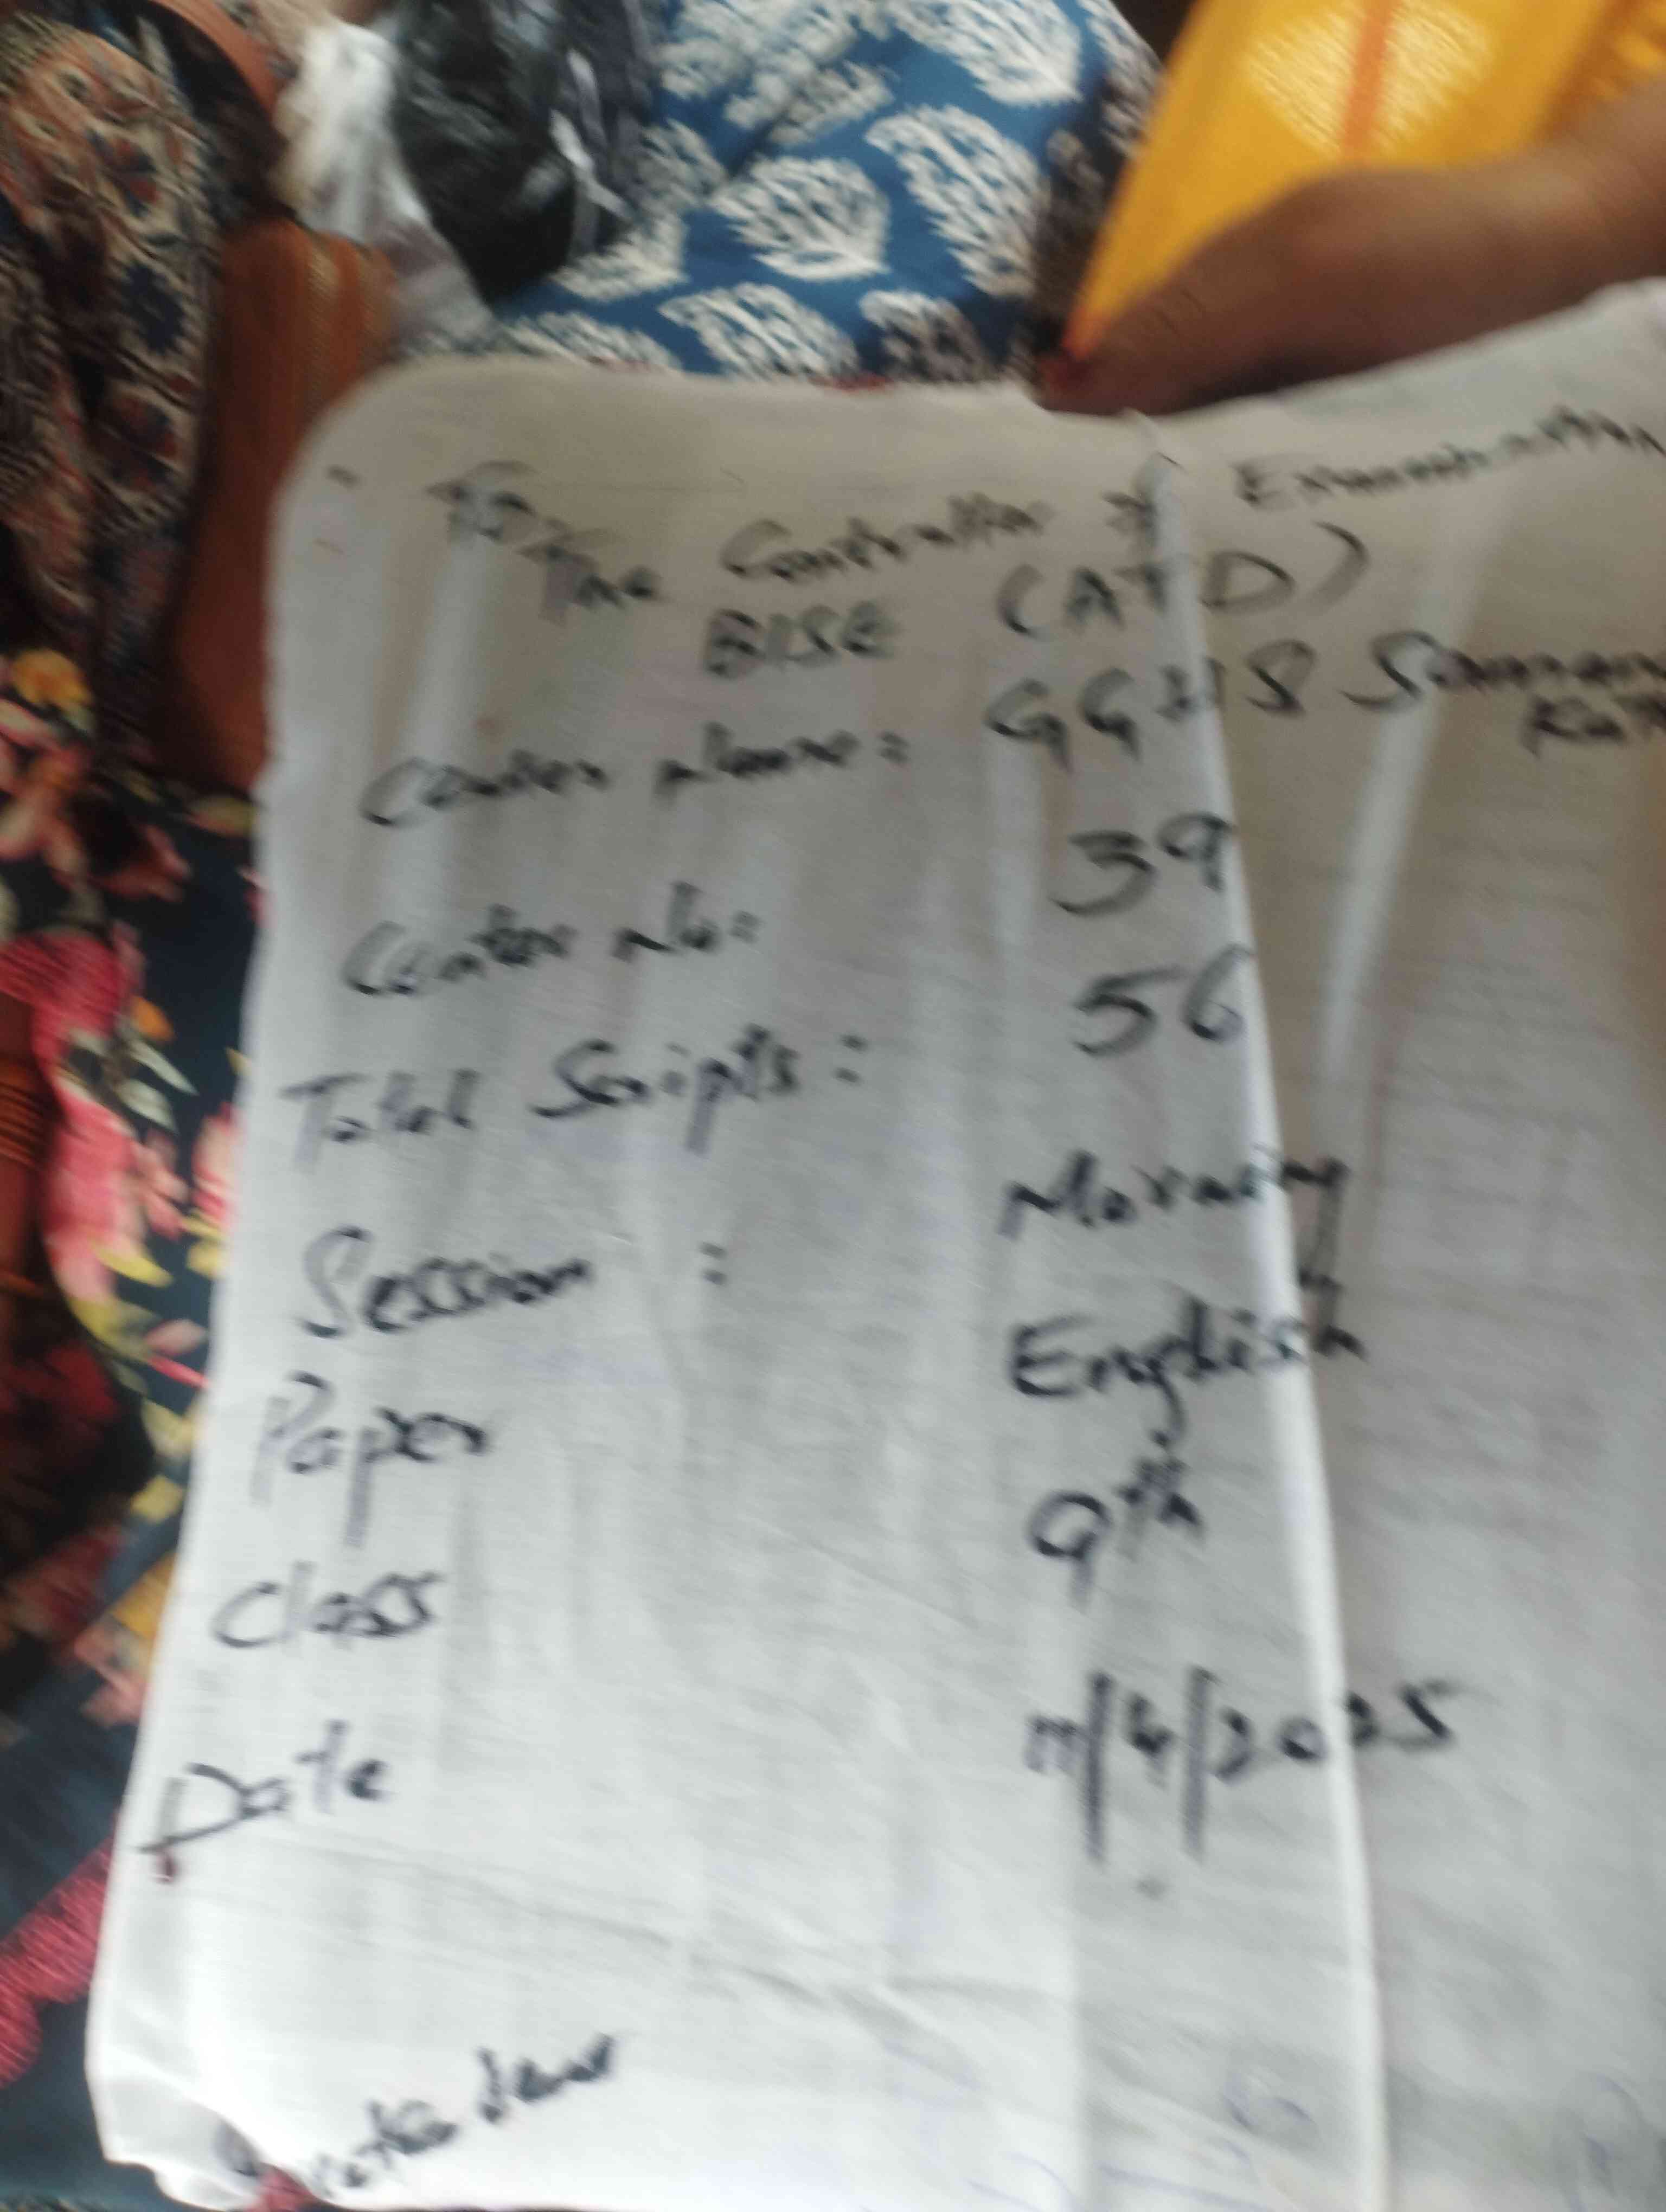 To
The Controller of Examination
BISE (ATD)
Center Name: GGHS
Center No: 39
Total Scripts: 56
Session : Morning
Paper English
Class 9th
Date 11/4/2025